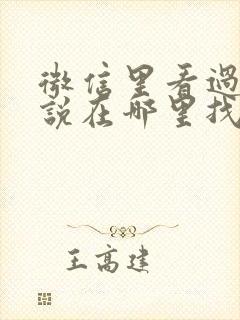 微信里看過
說在哪里找
王高建